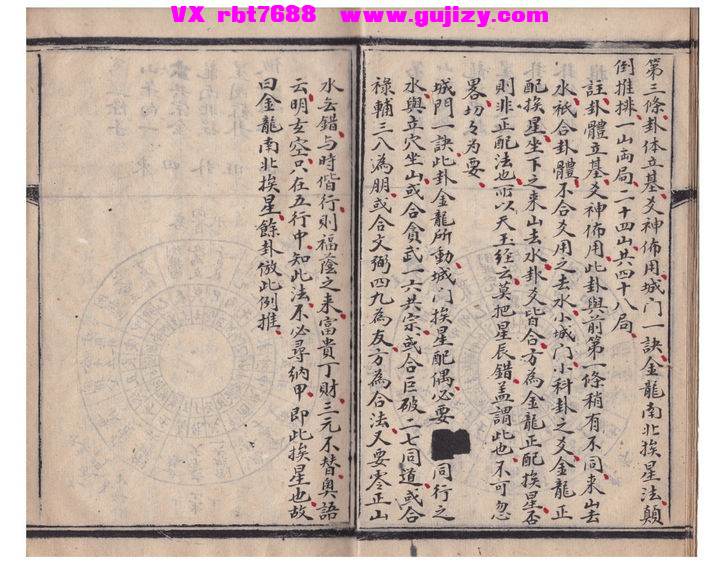 VX rbt7688 www.gujizy.com
第三條卦体立基爻神佈用城门一訣金龍南北挨星法顛
倒推排一山両局二十四山共四十八局
註卦體立基爻神佈用此卦與前第一條稍有不同来山去
水祇合卦體不合爻用之去水小城門小科卦之爻金龍正
配挨星坐下之来山去水卦爻皆合方為金龍正配挨星否
則非正配法也所以天玉經云莫把星辰錯盖謂此也不可忽
畧切々為要
城門一訣此卦金龍所動城门挨星配偶必要 同行之
水與立穴坐山或合貪武一六共宗或合巨破二七同道或合
祿輔三八為朋或合文弼四九為友方為合法又要零正山
水无錯与時偕行則福蔭之来富貴丁財三元不替奥語
云明玄空只在五行中知此法不必尋納甲即此挨星也故
曰金龍南北挨星餘卦倣此例推